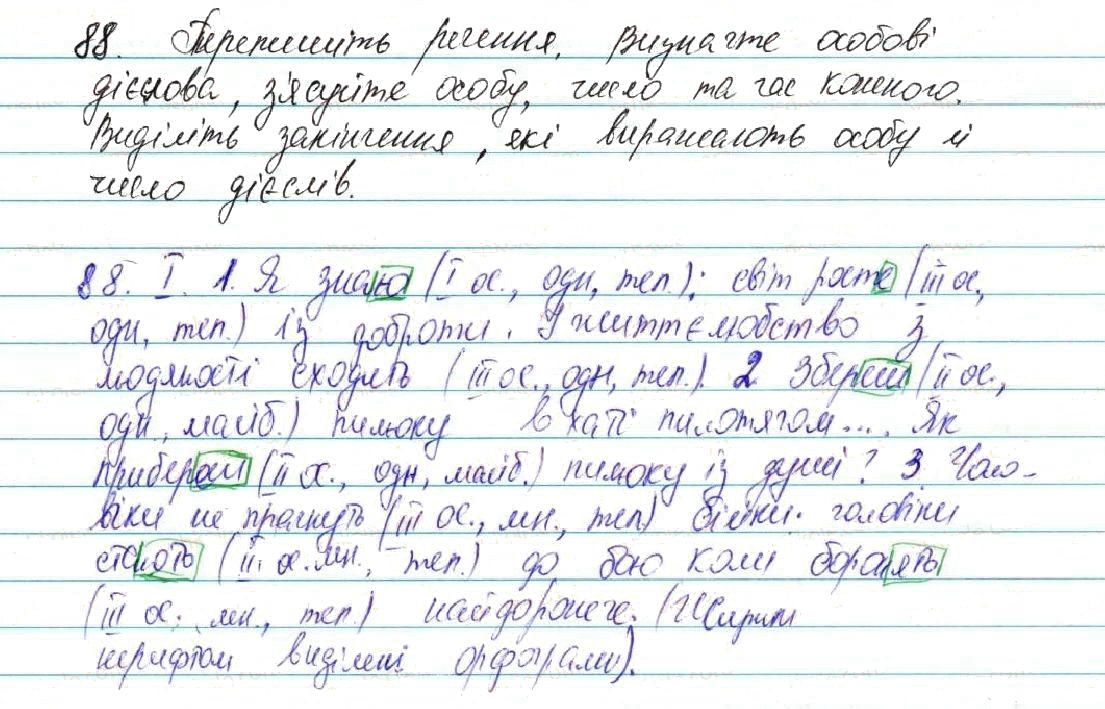 88. Перепишіть речення. Визначте особові
дієслова, з'ясуйте особу, число та час кожного.
Виділіть закінчення, які виражають особу й
число дієслів.
88. I. 1. Я знаю (I ос., одн, теп.): світ росте (III ос,
одн, теп.) із доброти. І життєлюбство з
людяності сходить (III ос., одн, теп.). 2. Збереш (II ос.,
одн., майб.) пилюку в хаті пилотягом.... Як
прибереш (II ос., одн, майб.) пилюку із душі? 3. Чоло-
віки не прагнуть (III ос., мн., теп) бійки. Чоловіки
стають (II. ос. мн., теп.) до бою коли боронять
(III ос., мн., теп.) найдорожче. (Жирним
шрифтом виділені орфограми).